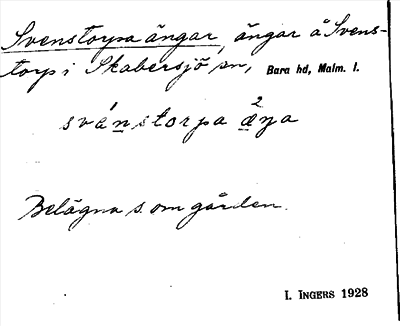 Svenstorpa ängar, ängar å Svens-
torp i Skabersjö sn, Bara hd, Malm. l.
svánstorpa ²æŋa
Belägna s. om gården.
I. INGERS 1928